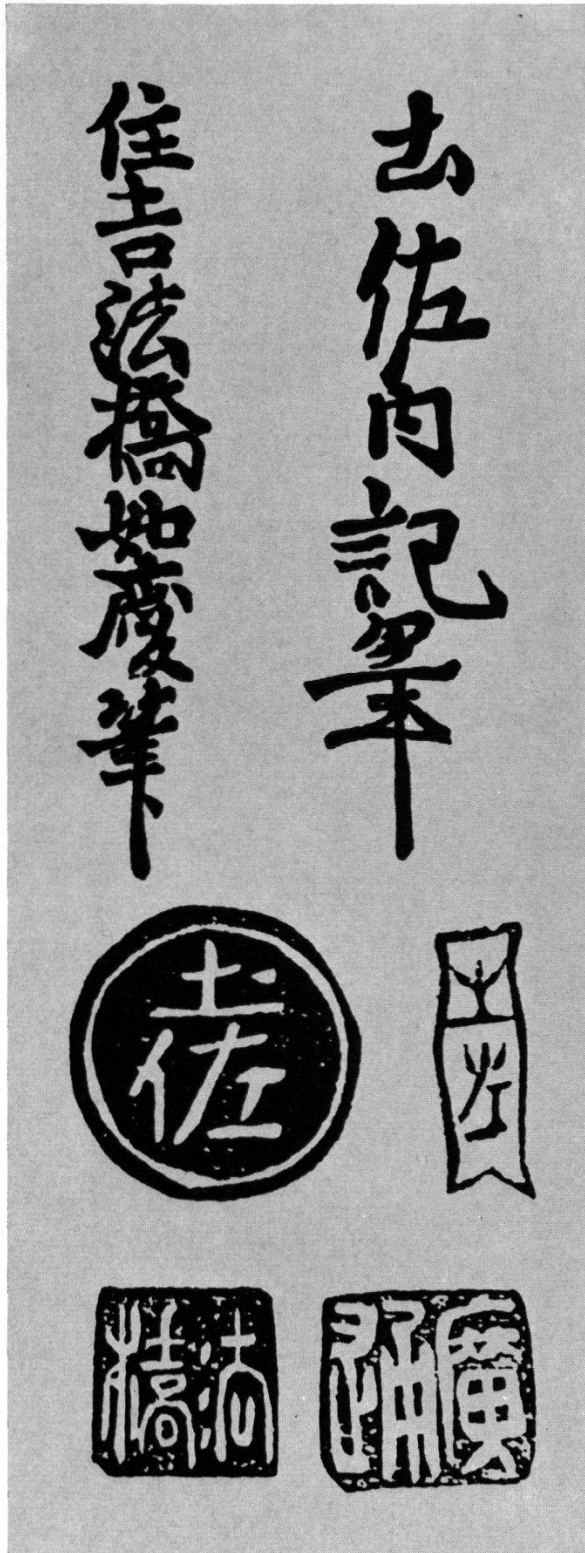 土佐内記筆
住吉法橋如慶筆
土佐
土左
廣通
法橋